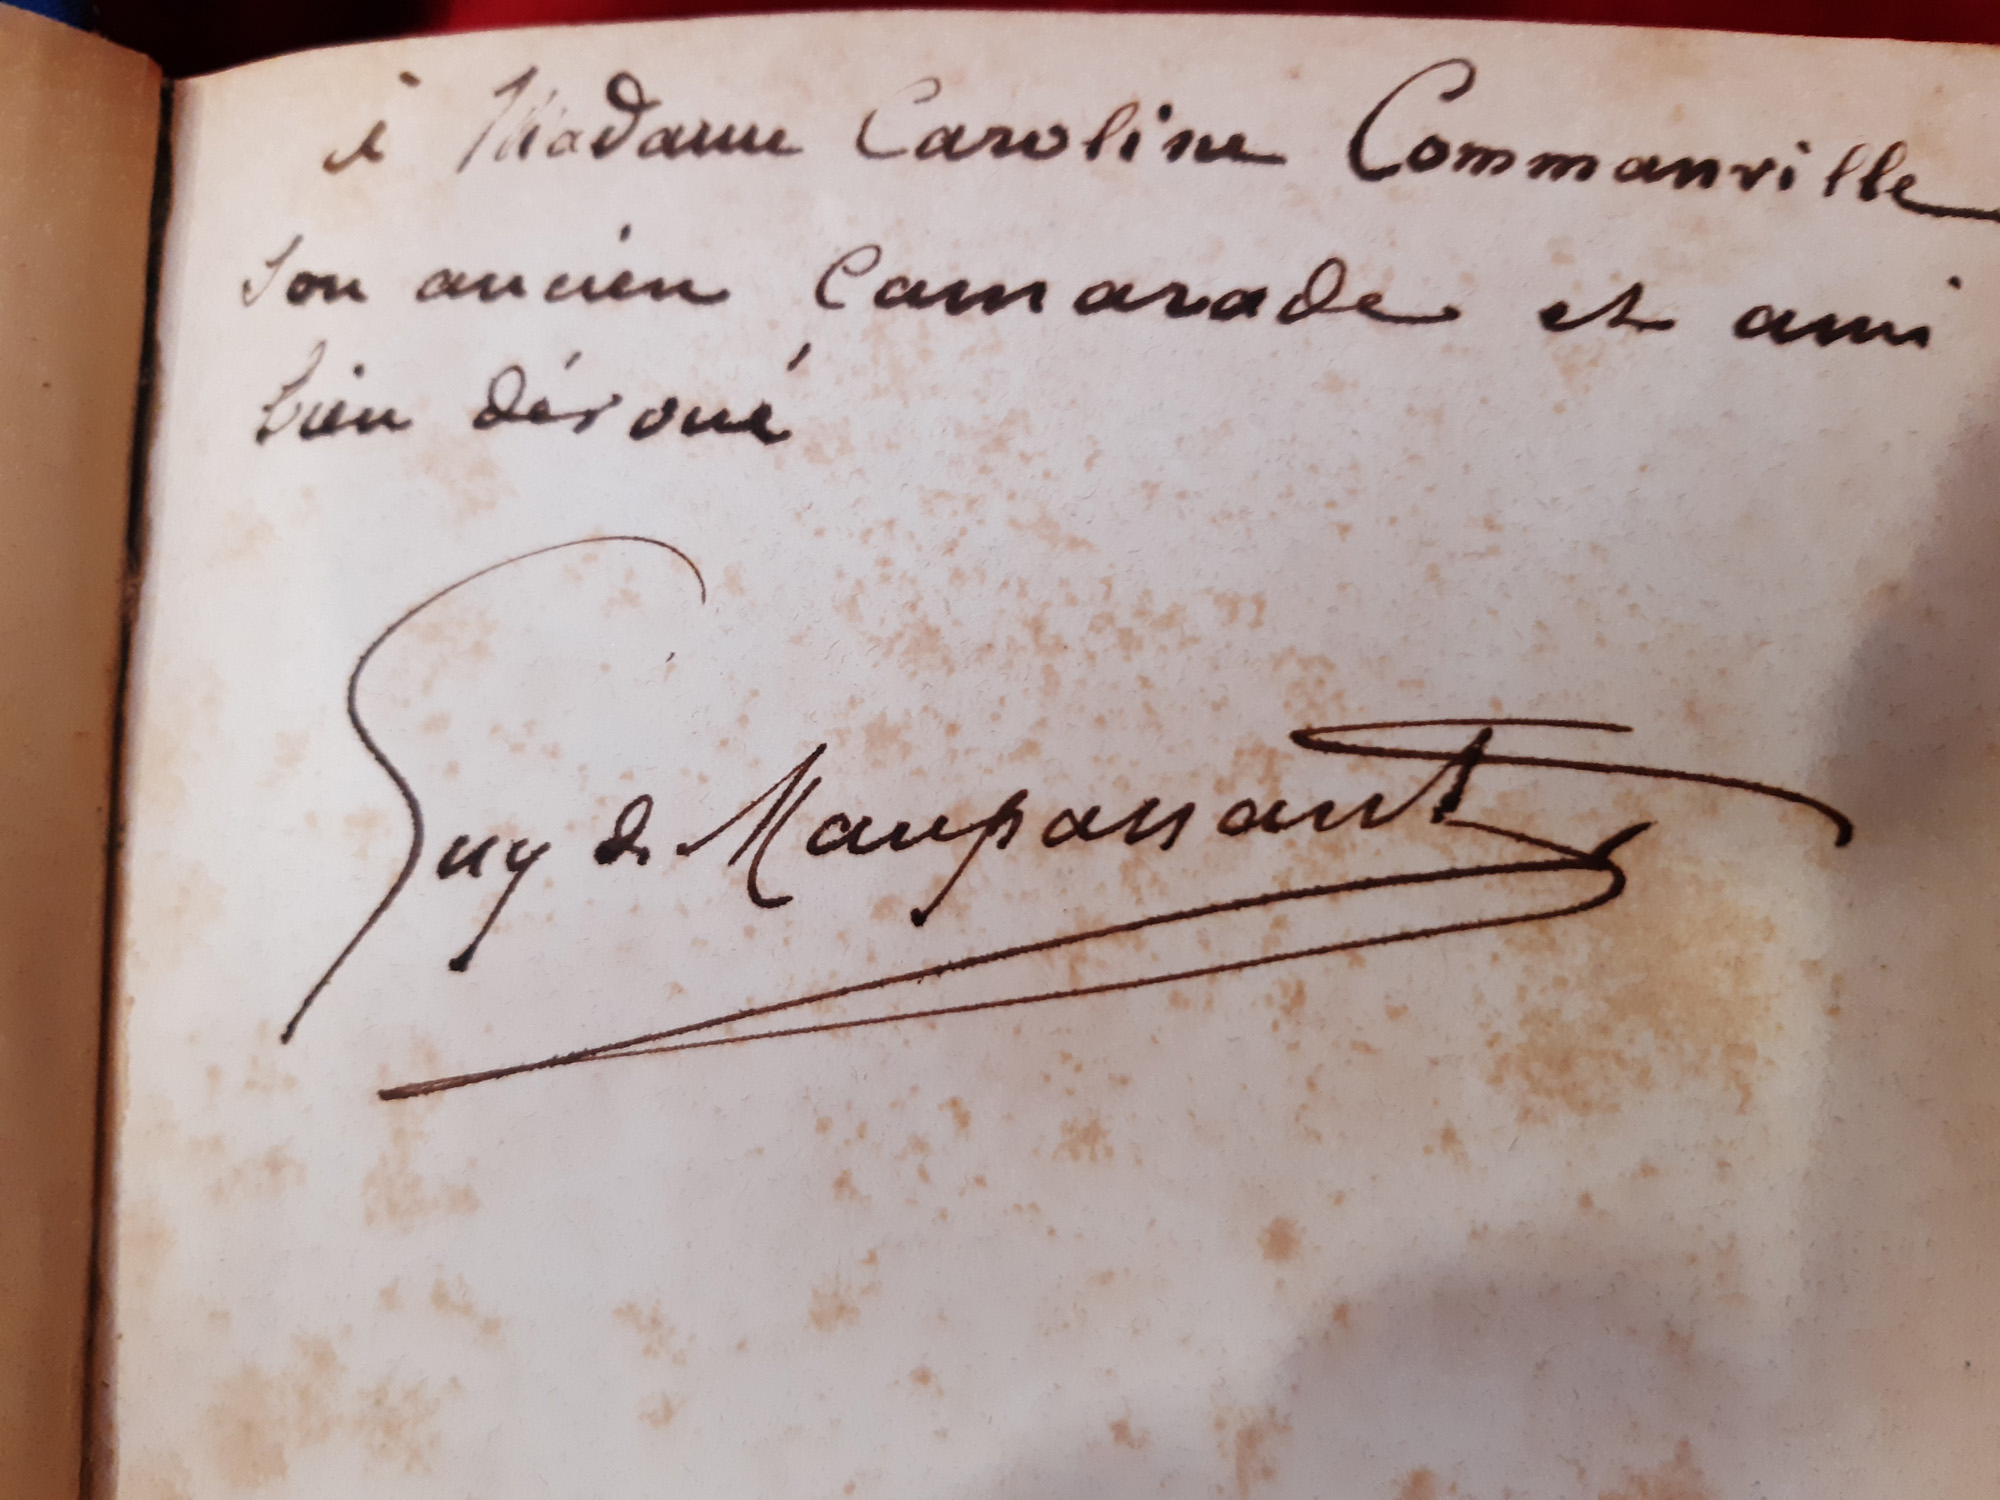 à Madame Caroline Commanville
son ancien Camarade et ami
bien dévoué
Guy de Maupassant